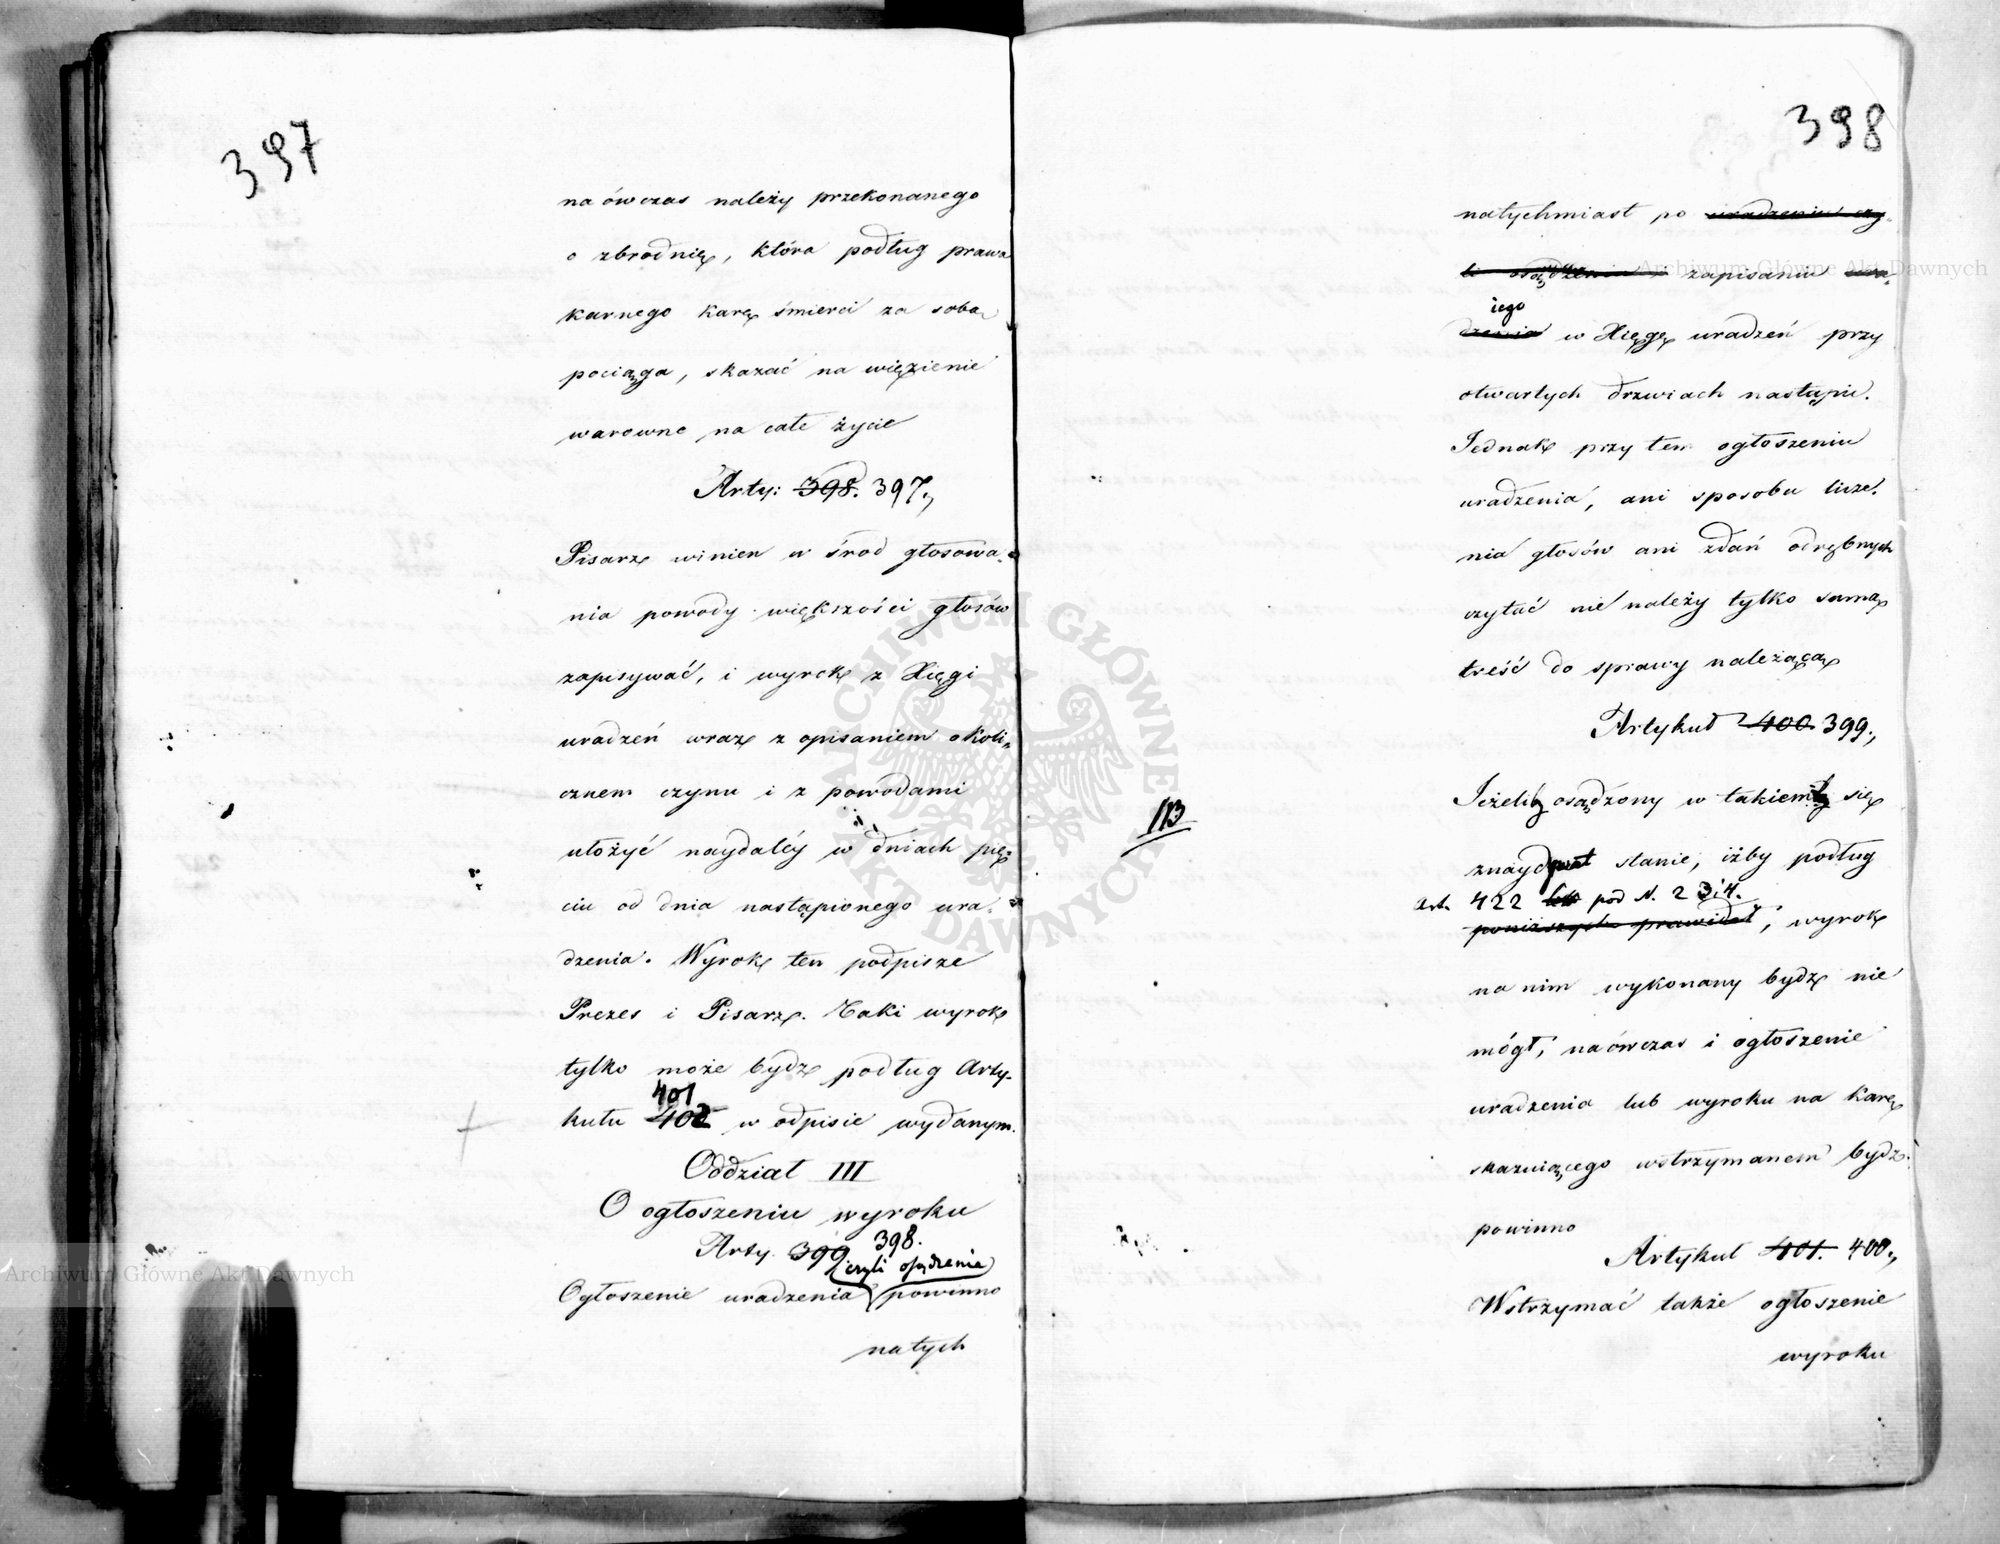 397
na ówczas należy przekonanego
o zbrodnię, która podług prawa
karnego karę śmierci za sobą
pociąga, skazać na więzienie
warowne na całe życie
Arty: 398. 397.,
Pisarz winien w środ głosowa-
nia powody większości głosów
zapisywać, i wyrok z Xięgi
uradzeń wraz z opisaniem okoli-
cznem czynu i z powodami
ułożyć naydaléy w dniach pię-
ciu od dnia nastąpionego ura-
dzenia. Wyrok ten podpisze
Prezes i Pisarz. Taki wyrok
tylko może bydź podług Arty-
401
kułu 402 w odpisie wydanym.
Oddział III
O ogłoszeniu wyroku
Arty. 399 398.
czyli osądzenia
Ogłoszenie uradzenia powinno
natych
398
natychmiast po uradzeniu czy-
li osądzeniu zapisaniu ura-
iego
dzenia w Xięgę uradzeń przy
otwartych drzwiach nastąpić.
Jednak przy tem ogłoszeniu
uradzenia, ani sposobu licze-
nia głosów ani zdań odrębnych
czytać nie należy tylko samą
treść do sprawy należącą
Artykuł 400 399.,
113
Jeżeliby osądzony w takiem się
znaydował stanie, iżby podług
art. 422 pod N. 2 3 i 4.
poniższych prawideł, wyrok
na nim wykonany bydź nie
mógł, naówczas i ogłoszenie
uradzenia lub wyroku na karę
skazuiącego wstrzymanem bydź
powinno
Artykuł 401. 400.,
Wstrzymać także ogłoszenie
wyroku
Archiwum Główne Akt Dawnych
Archiwum Główne Akt Dawnych
ARCHIWUM GŁÓWNE AKT DAWNYCH